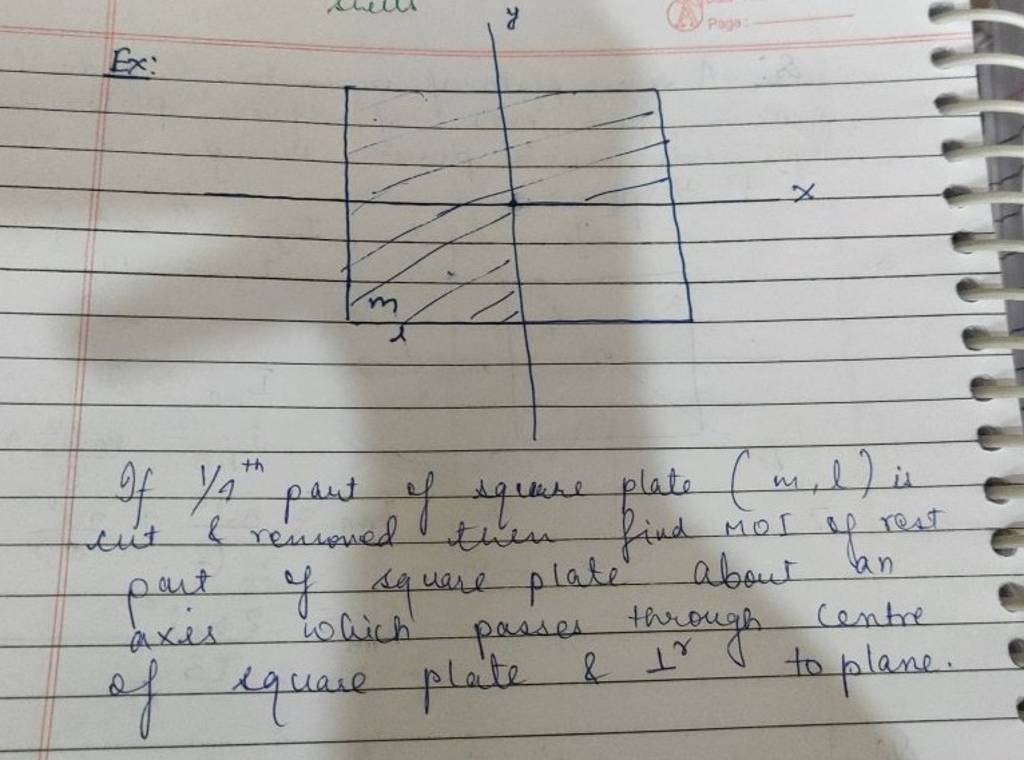 shell
Page:
y
Ex:
x
m
l
If 1/4th part of square plate (m, l) is
cut & removed then find MOI of rest
part of square plate about an
axis which passes through centre
of square plate & ⊥r to plane.